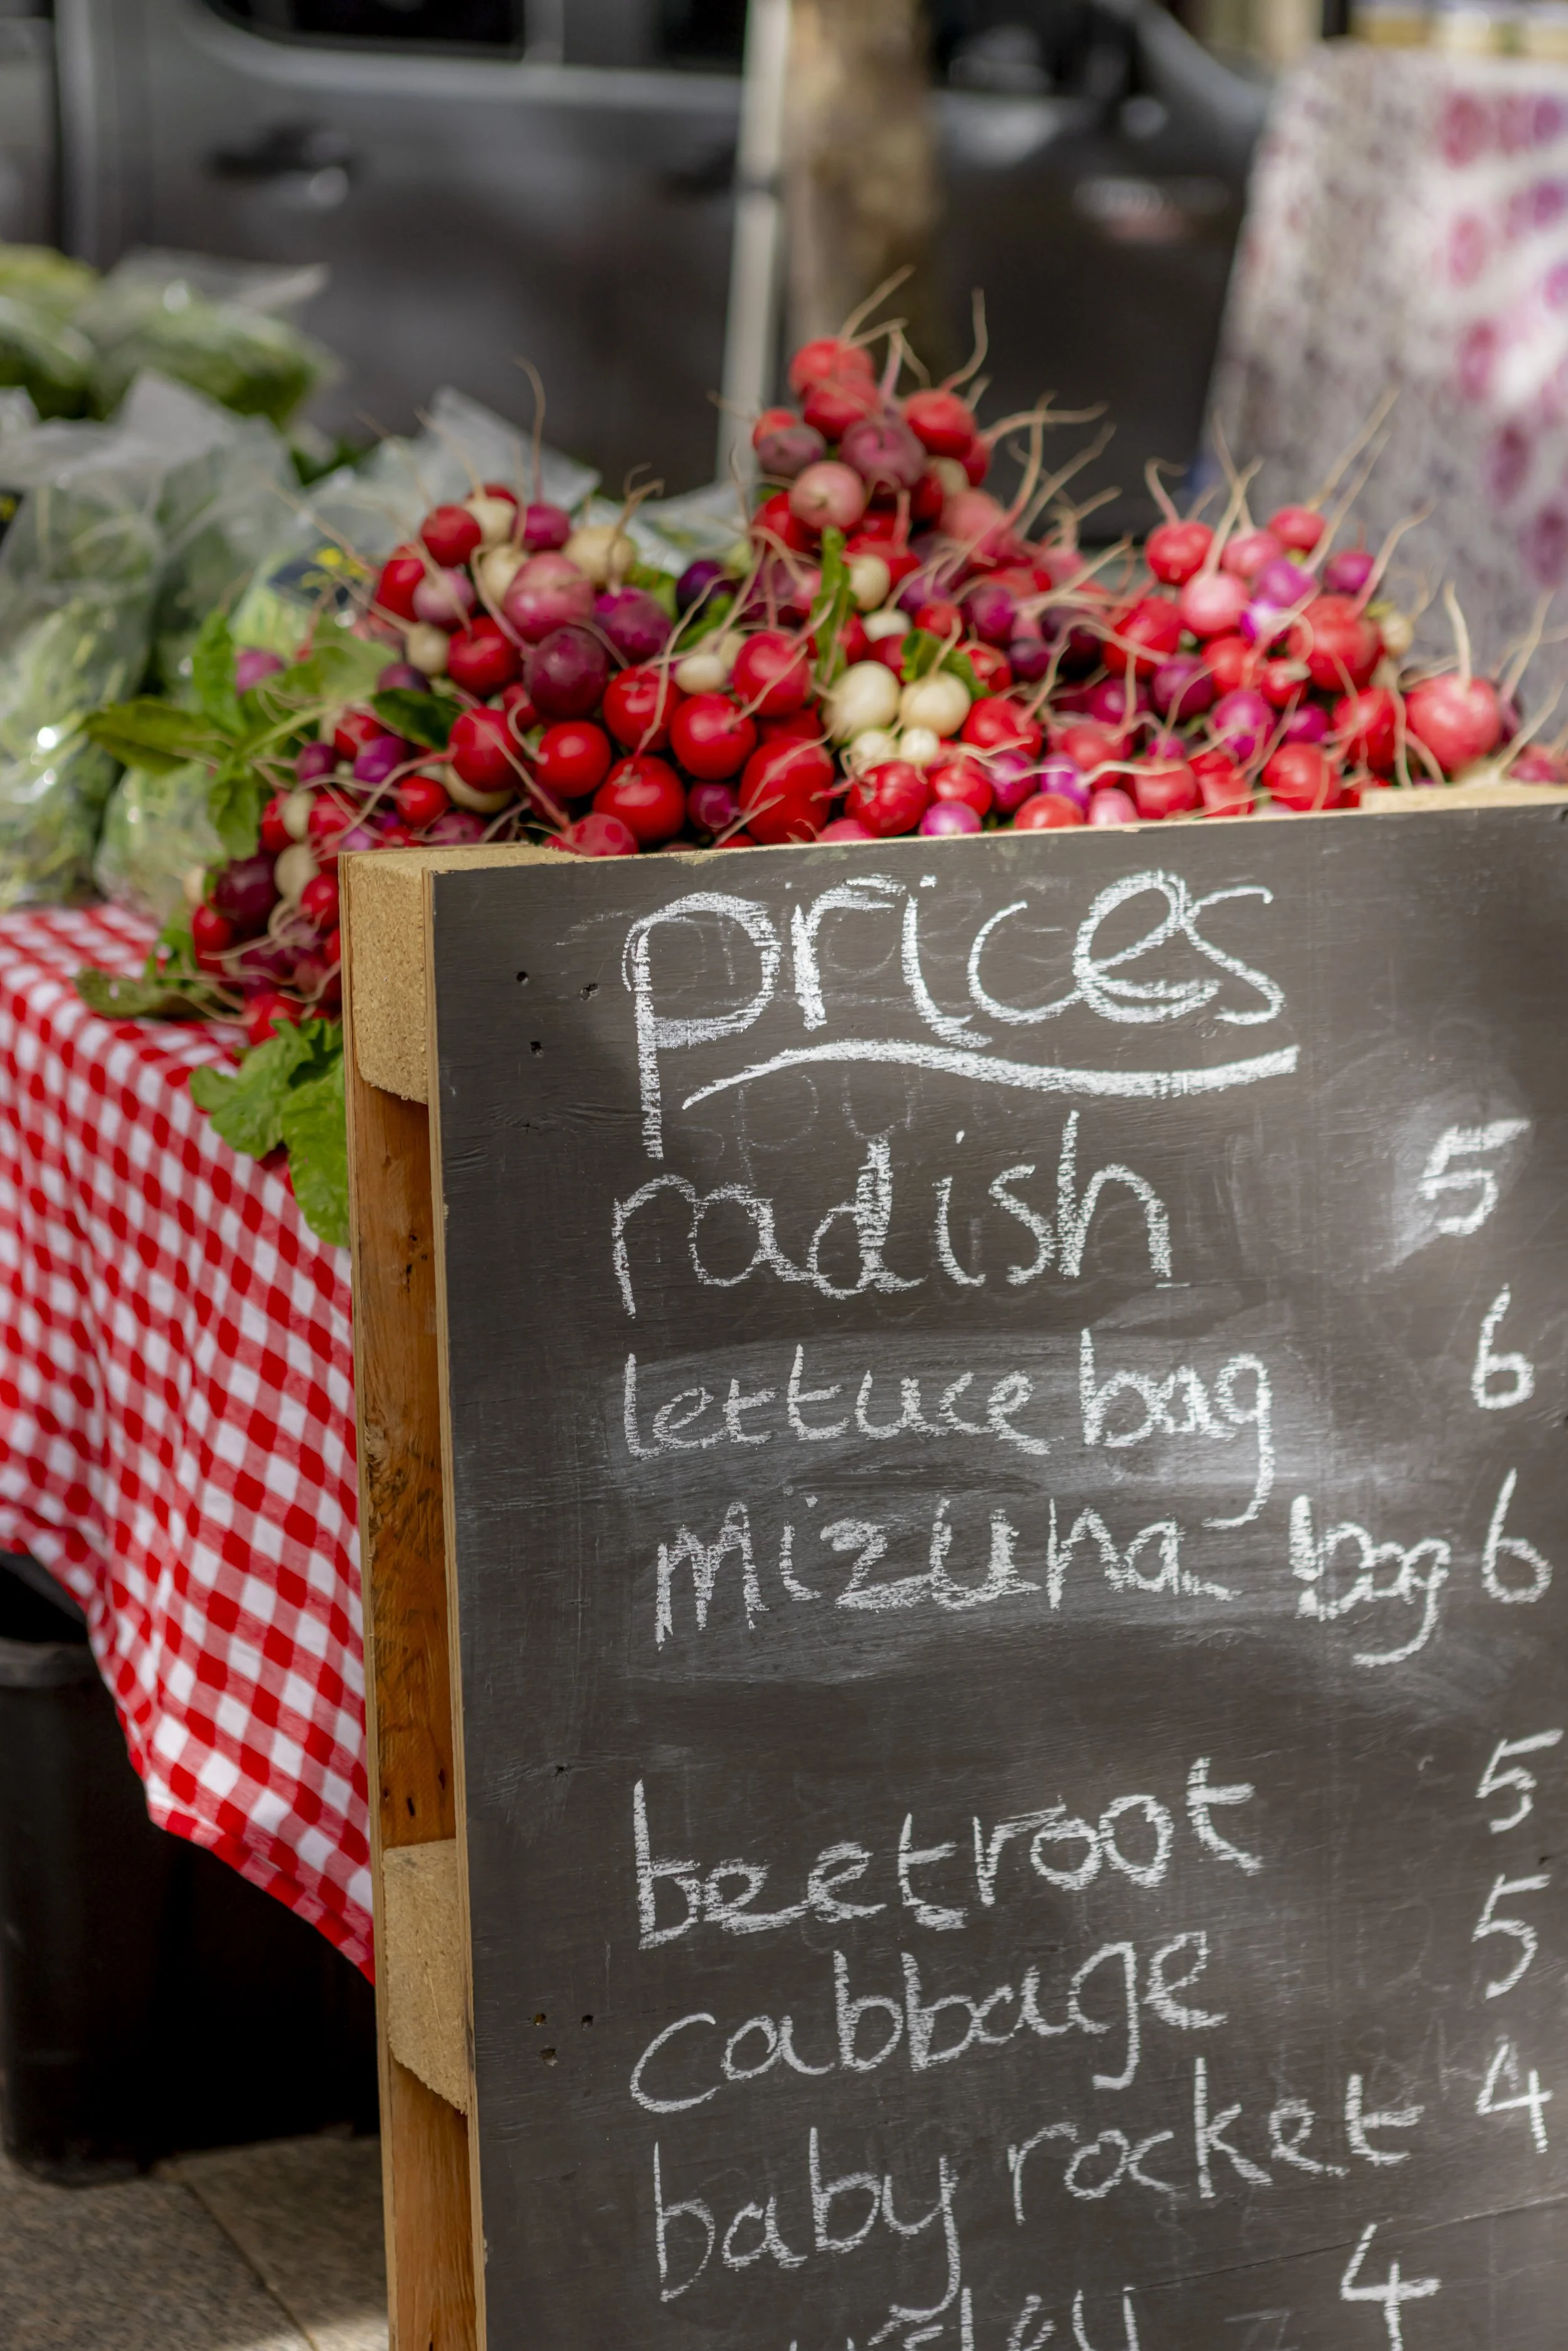 prices
radish 5
lettuce bag 6
Mizuna bag 6
beetroot 5
cabbage 5
baby rocket 4
4